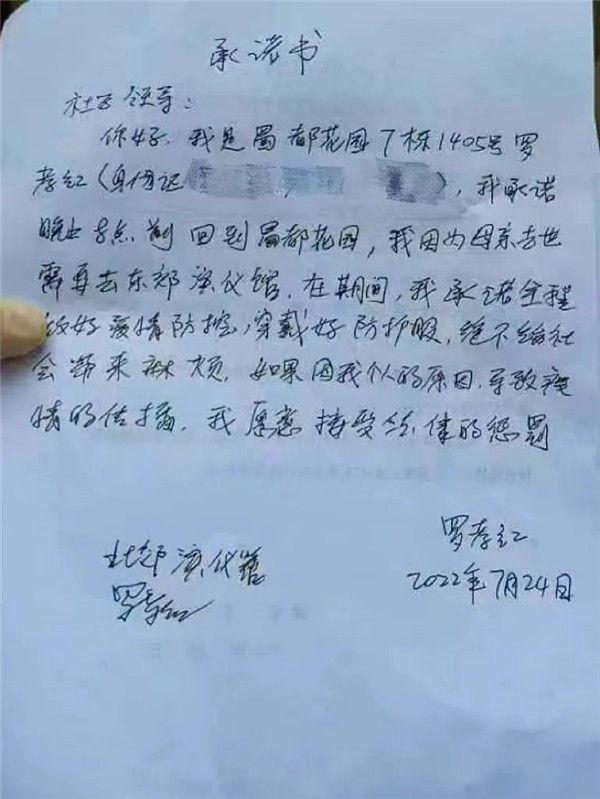 承诺书
社区领导：
你好，我是蜀都花园7栋1405号罗
孝红（身份证），我承诺
晚上8点前回到蜀都花园，我因为母亲去世
需要去东郊殡仪馆，在期间，我承诺全程
做好疫情防控，穿戴好防护服，绝不给社
会带来麻烦，如果因我个人的原因，导致疫
情的传播，我愿意接受法律的惩罚
罗孝红
2022年7月24日
北郊殡仪馆
罗孝红